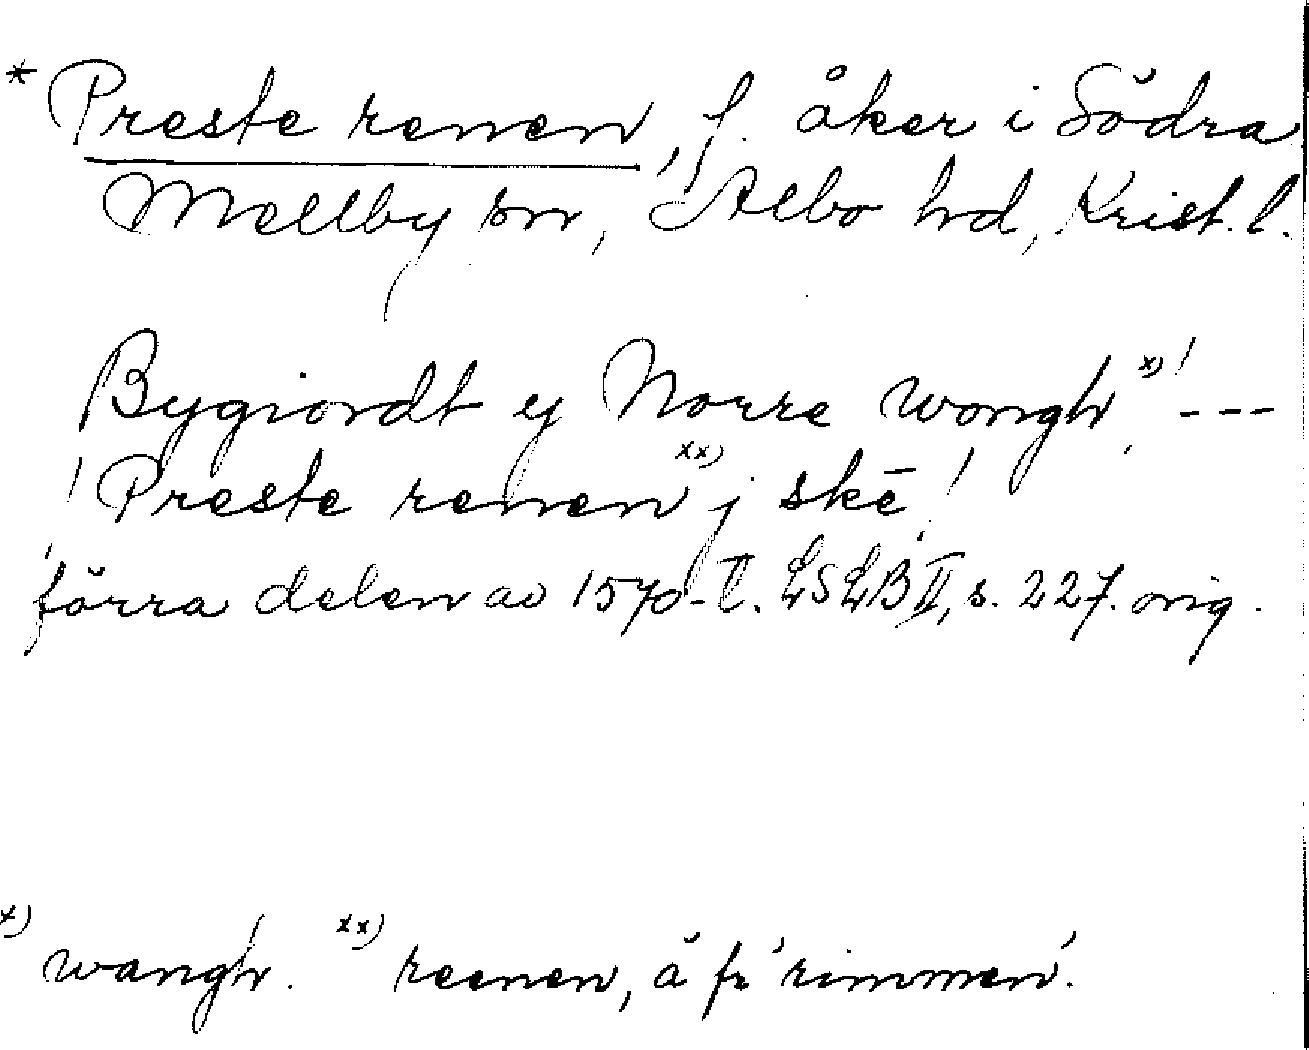 * Preste renen, f. åker i Södra
Mellby sn, Albo hd, Krist. l.
Bygiordt ey Norre wongh, x) / ---
/ Preste renen xx) j skē /
förra delen av 1570-t. LSLB II, s. 227. orig.
x) wangh. xx) reenen, ä fr 'rimmen'.